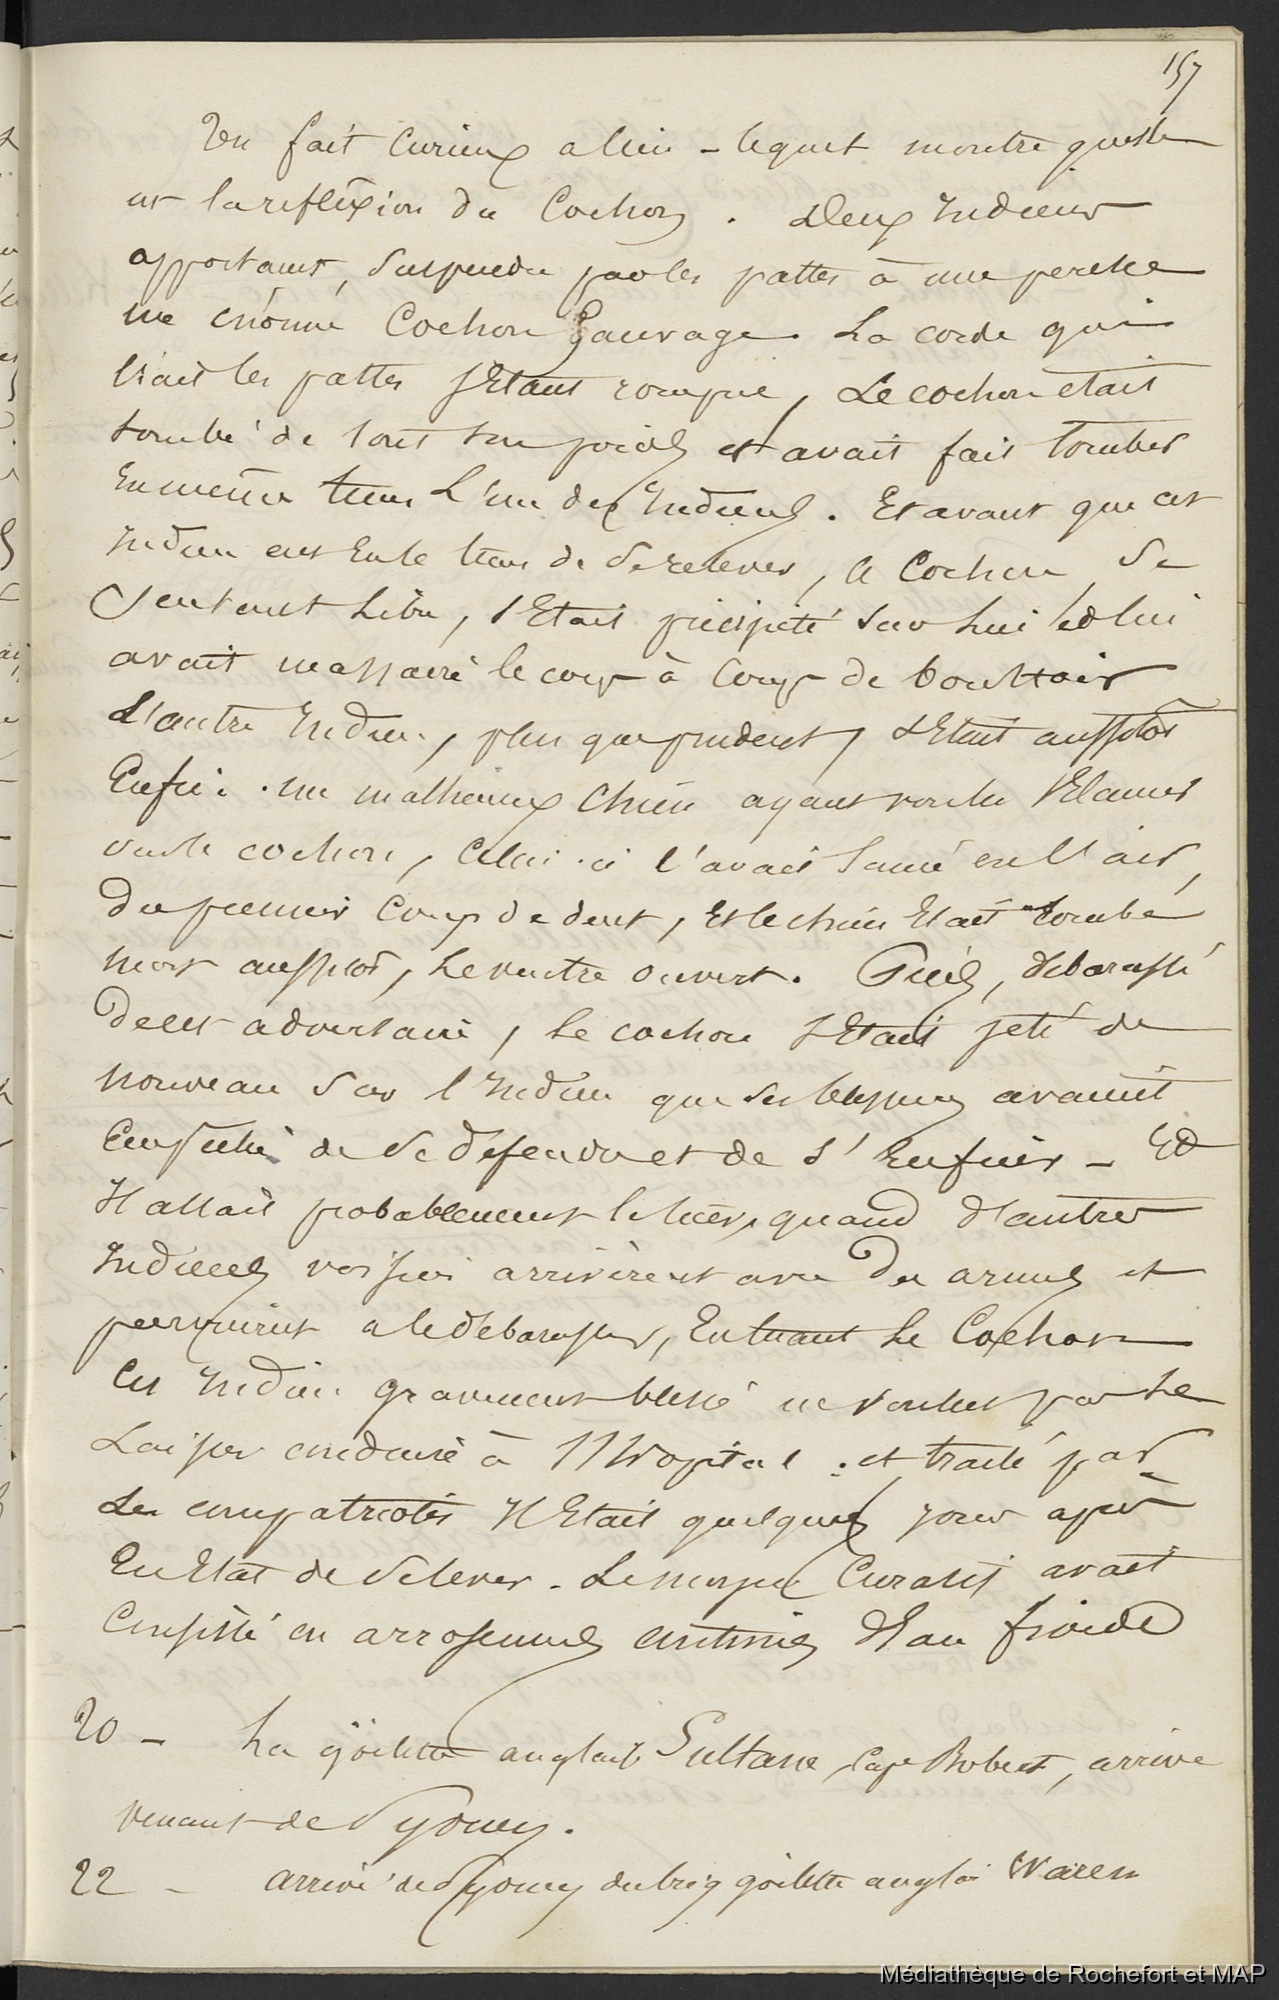 157
Un fait curieux a lieu - lequel montre quelle
est la reflexion du Cochon. Deux Indiens
apportaient, suspendu par les pattes à une perche
une énorme Cochon Sauvage. La corde qui
liait les pattes s'Etant rompue, Le cochon etait
tombé de tout son poids et avait fait tomber
En même tems L'un des Indiens. Et avant que cet
Indien eut Eu le tems de se relever, le Cochon se
Sentant Libre, s'Etait précipité sur Lui et lui
avait massacré le corps à Coups de bouttoir
L'autre Indien, plus que prudent, s'Etait aussitôt
Enfui. un malheureux Chien ayant voulu s'Elancer
sur le cochon, Celui-ci l'avait lancé en l'air,
Du premier Coup de dent, Et le chien Etait tombé
mort aussitôt, Le ventre ouvert. Puis, débarassé
De cet adversaire, Le cochon s'Etait jeté de
nouveau sur l'Indien que ses blessures avaient
Empêché de se défendre et de s'Enfuir - Et
Il allait probablement le tuer, quand d'autres
Indiens voisins arrivèrent avec Des armes et
parvinrent a le débarasser, En tuant Le Cochon
Cet Indien gravement blessé ne voulut pas se
Laisser conduire à l'Hopital : et traité par
Les compatriotes Il Etait quelques jours après
En Etat de se lever. Le moyen Curatif avait
Consisté en arrosements continuels d'Eau froide
20 - La göelette anglaise Sultane, Cape Robert, arrive
venant de Sydney.
22 - arrivé de Sydney du brig göelette anglais Waren
Médiathèque de Rochefort et MAP